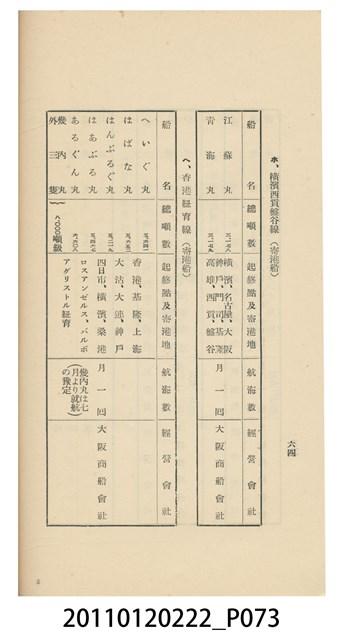 ホ、橫濱西貢盤谷線（寄港船）
船名 總噸數 起終點及寄港地 航海數 經營會社
江蘇丸 橫濱、名古屋、大阪
靑海丸 神戶、門司、基隆
高雄、西貢、盤谷
月一回 大阪商船會社
ヘ、香港紐育線（寄港船）
船名 總噸數 起終點及寄港地 航海數 經營會社
へいぐ丸
はばな丸
はんぶるぐ丸
はあぶる丸
あるぐん丸
畿內丸
外三隻 八、〇〇〇噸級
香港、基隆、上海
大沽、大連、神戶
四日市、橫濱、桑港
ロスアンゼルス、バルボ
アクリストル紐育
月一回
（畿內丸は七
月より就航
の豫定）
大阪商船會社
六四
20110120222_P073